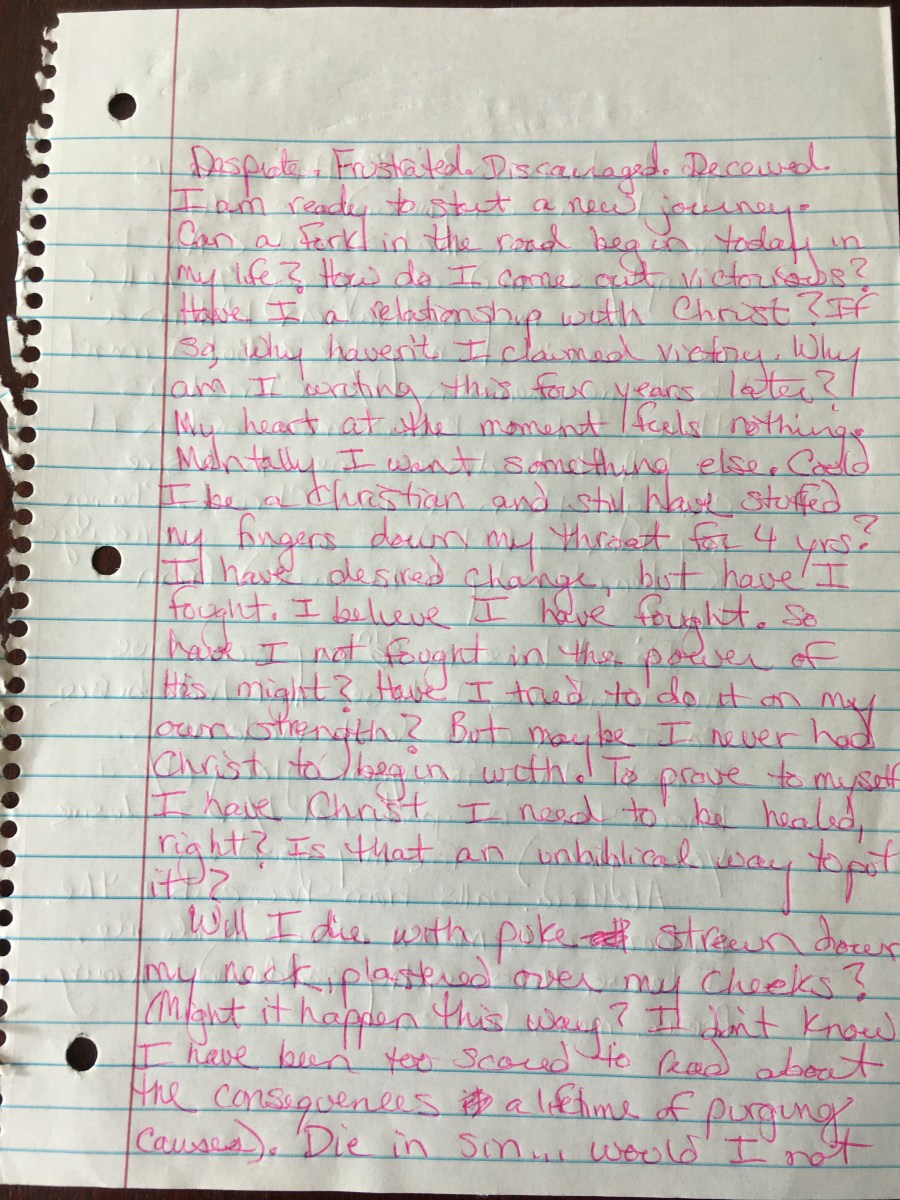 Desprate. Frustrated. Discouraged. Deceived.
I am ready to start a new journey.
Can a fork in the road begin today in
my life? How do I come out victorious?
Have I a relationship with Christ? If
so, why haven't I claimed victory. Why
am I writing this four years later?
My heart at the moment feels nothing.
Mentally I want something else. Could
I be a Christian and still have stuffed
my fingers down my throat for 4 yrs?
I have desired change, but have I
fought. I believe I have fought. So
have I not fought in the power of
His might? Have I tried to do it on my
own strength? But maybe I never had
Christ to begin with. To prove to myself
I have Christ I need to be healed,
right? Is that an unbiblical way to put
it?
Will I die with puke strewn down
my neck, plastered over my cheeks?
(Might it happen this way? I don't know
I have been too scared to read about
the consequences a lifetime of purging
causes). Die in sin... would I not